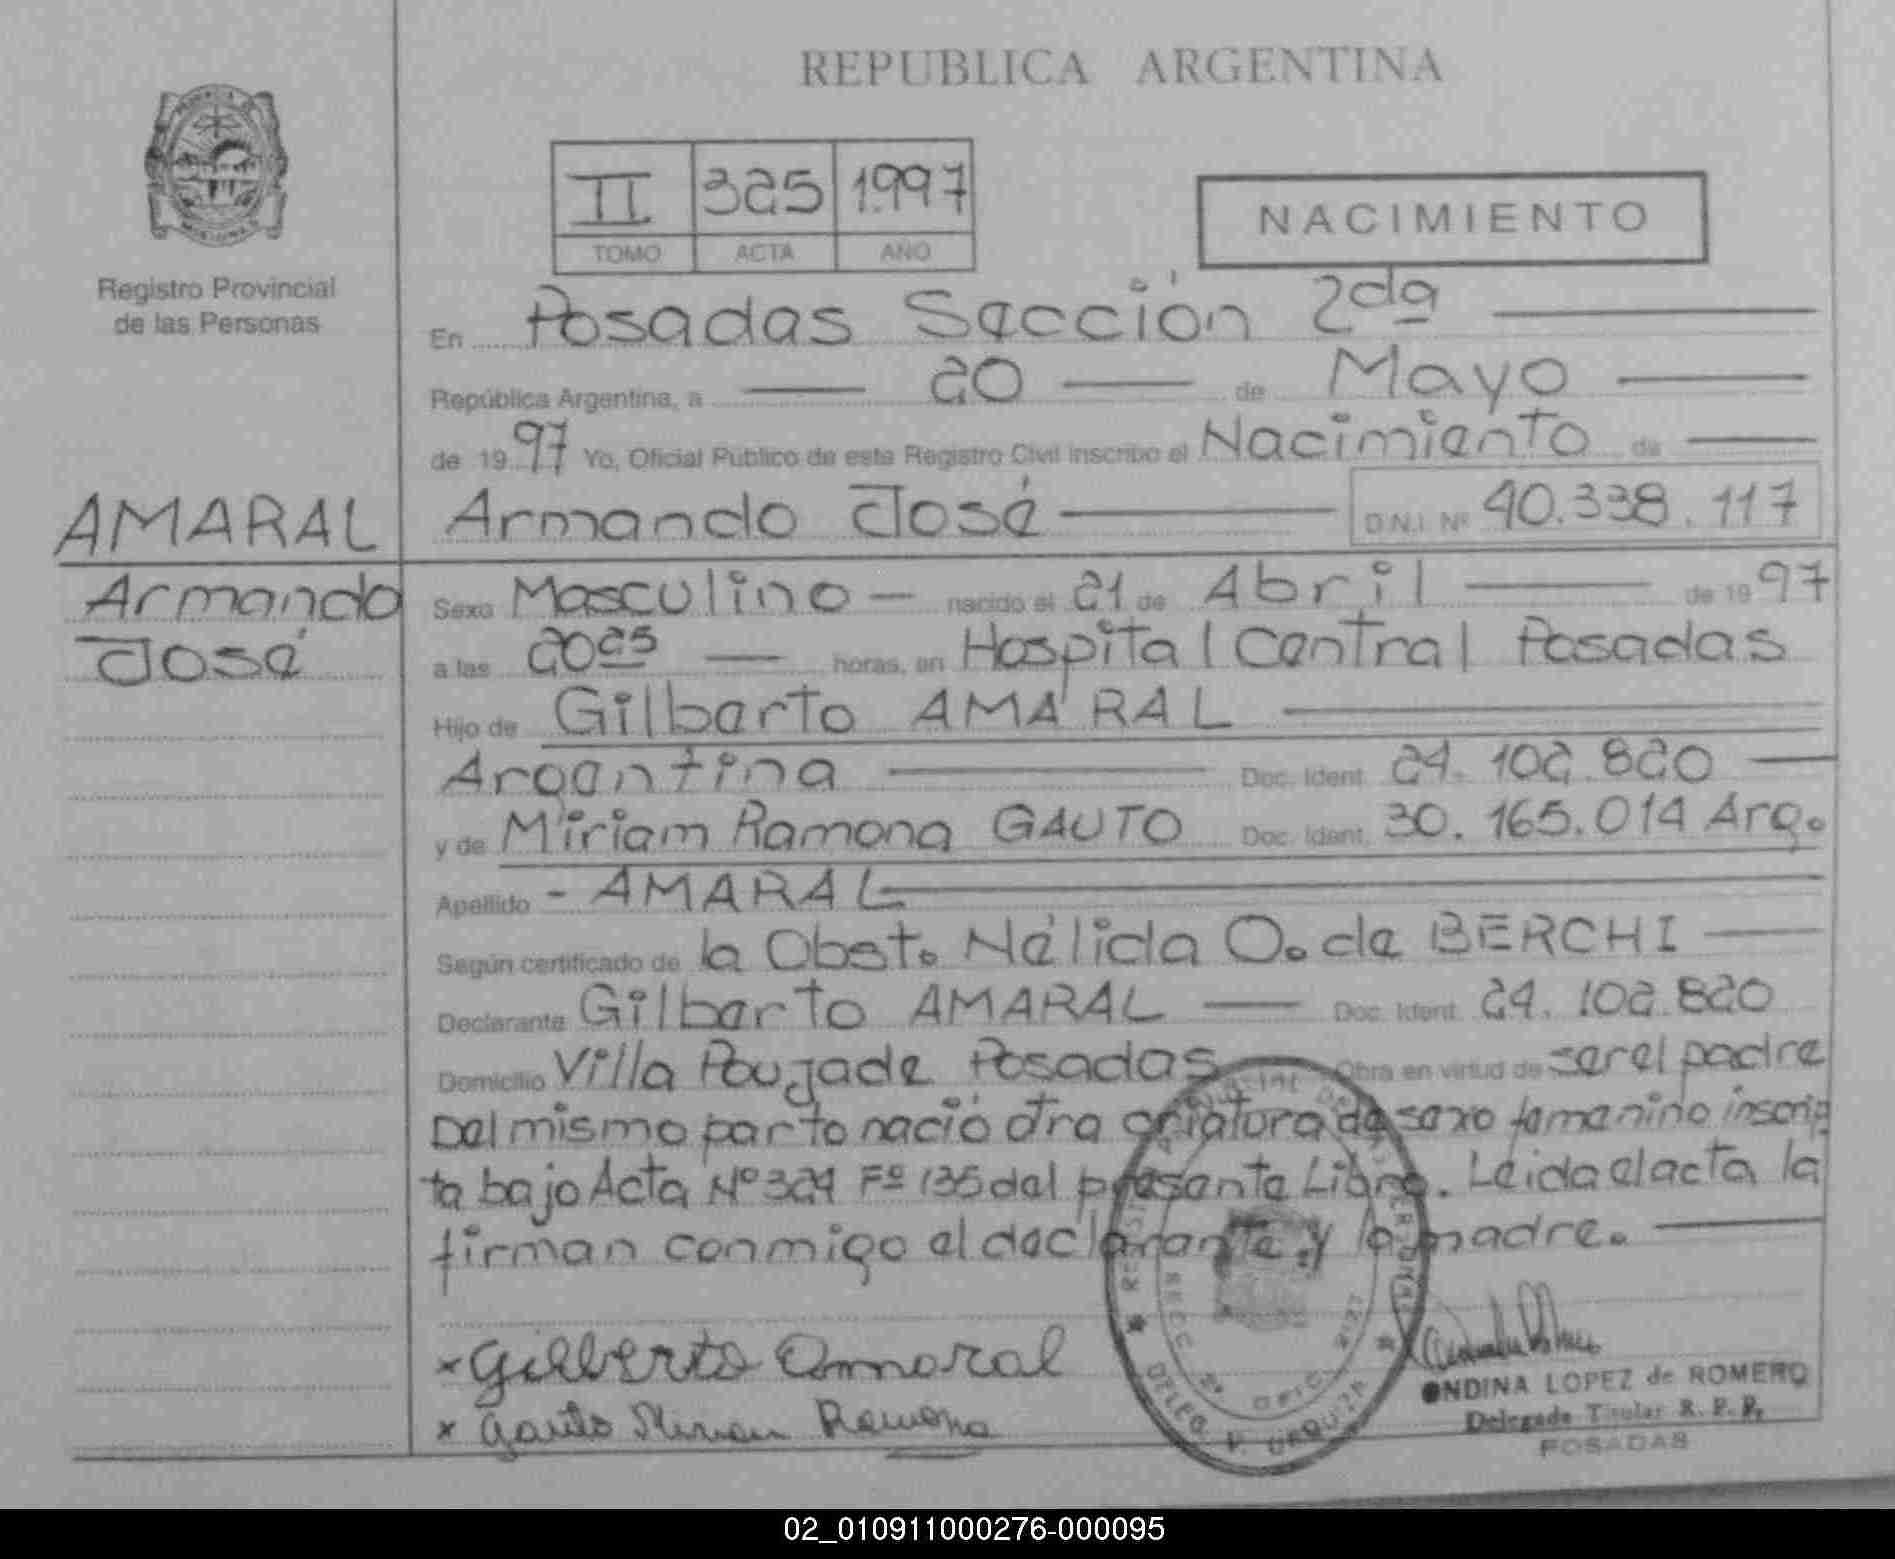 REPUBLICA ARGENTINA
II 325 1997
TOMO ACTA AÑO
NACIMIENTO
Registro Provincial
de las Personas
En Posadas Sección 2da
República Argentina, a 20 de Mayo
de 1997 Yo, Oficial Público de este Registro Civil inscribo el Nacimiento de
AMARAL
Armando José
Armando José D.N.I. Nº 40.338.117
Sexo Masculino nacido el 21 de Abril de 1997
a las 2025 horas, en Hospital Central Posadas
Hijo de Gilberto AMARAL
Argentina Doc. Ident. 24.102.820
y de Miriam Ramona GAUTO Doc. Ident. 30.165.014 Arg.
Apellido - AMARAL
Según certificado de la Obst. Nélida O. de BERCHI
Declarante Gilberto AMARAL Doc. Ident. 24.102.820
Domicilio Villa Poujade Posadas Obra en virtud de ser el padre
Del mismo parto nació otra criatura de sexo femenino inscrip
ta bajo Acta Nº 324 Fº 135 del presente Libro. Leida el acta la
firman conmigo el declarante y la madre.
x Gilberto Amaral
x Gauto Miriam Ramona
ONDINA LOPEZ de ROMERO
Delegada Titular R. P. P.
POSADAS
02_010911000276-000095